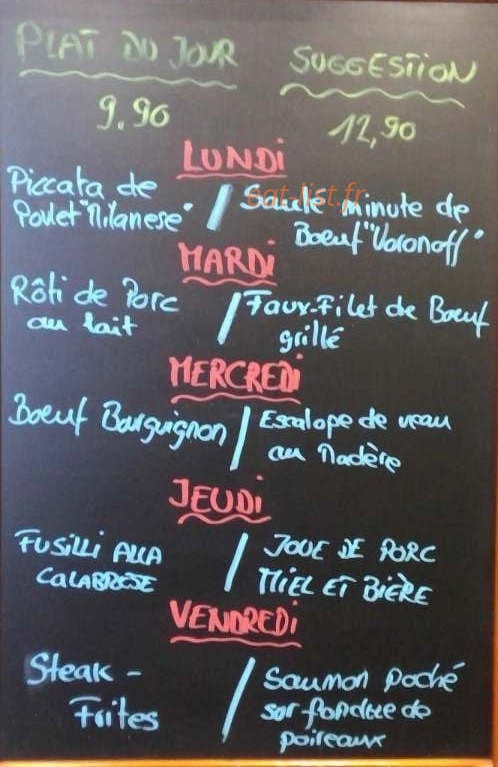 PLAT DU JOUR
9.90
SUGGESTION
12,90
LUNDI
Piccata de
Poulet "Milanese"
/
Sauté minute de
Boeuf "Voronoff"
eat-list.fr
MARDI
Rôti de Porc
au lait
/
Faux-Filet de Boeuf
grillé
MERCREDI
Boeuf Bourguignon
/
Escalope de veau
au Madère
JEUDI
FUSILLI ALLA
CALABRESE
/
JOUE DE PORC
MIEL ET BIÈRE
VENDREDI
Steak -
Frites
/
Saumon poché
sur fondue de
poireaux